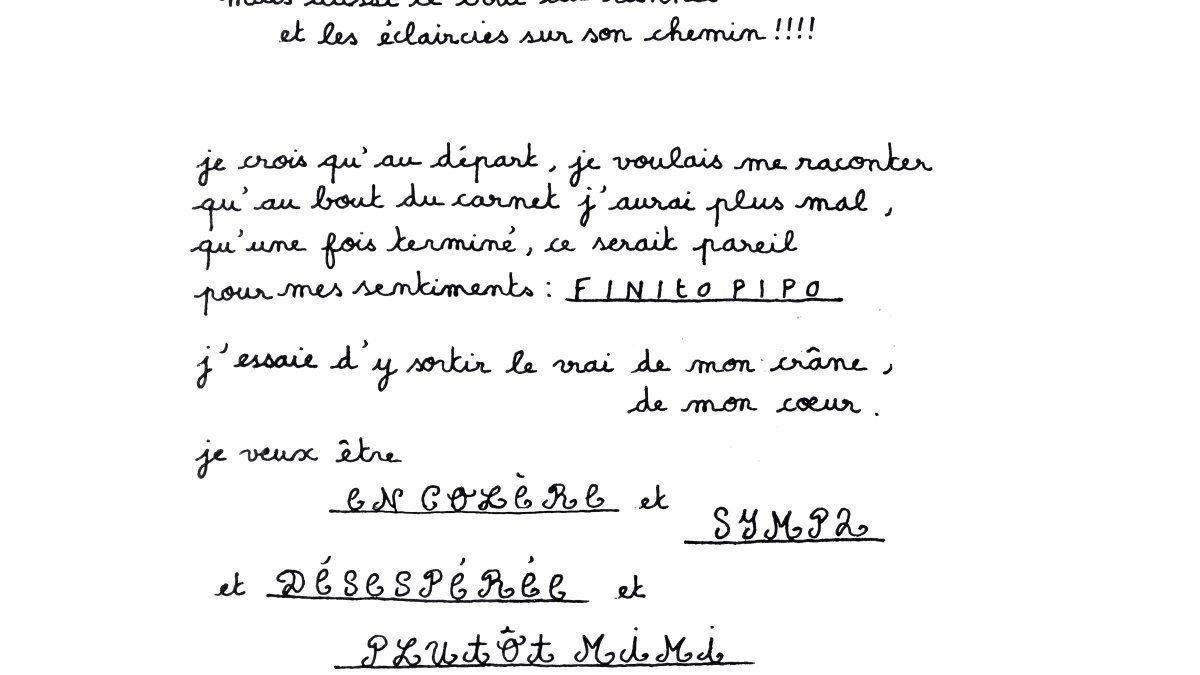 et les éclaircies sur son chemin !!!!
je crois qu'au départ, je voulais me raconter
qu'au bout du carnet j'aurai plus mal,
qu'une fois terminé, ce serait pareil
pour mes sentiments : FINITO PIPO
j'essaie d'y sortir le vrai de mon crâne,
de mon cœur.
je veux être
EN COLÈRE et
SYMPA
et DÉSESPÉRÉE et
PLUTÔT MiMi